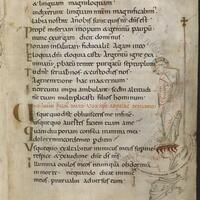 & linguam magniloquam
qui dixerunt linguam nram magnificabim
labia nostra a nobis sunt quis nr dns est
Propter miseriam inopum & gemitum paupe
nunc exurgam dicit dominus
Ponam in salutari fiducialiter agam in eo
eloquia dni eloquia casta argentum igne
natum probatum terre purgatum septuplum
Tu dne servabis nos & custodies nos
a generatione hac in aeternum
In circuitu impii ambulant secdm altitudi
nem tuam multiplicasti filios hominum
Usquequo dne oblivisceris me in finem
usquequo avertis faciem tuam a me
quamdiu ponam consilia in anima mea
dolorem in corde meo per diem
Usquequo exaltabitur inimicus meus super me
respice exaudi me dne ds meus
Inlumina oculos meos ne umquam obdormiam
in morte nequando dicat inimicus
meus prevalui adversus eum